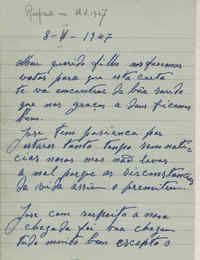 8-V-1947
Meu querido filho nos fazemos
votos para que esta carta
te vá encontrar de bôa saude
que nos graças a Deus ficamos
bem.
José tem pasiença por
estares tanto tempo sem noti-
cias nosas mas não leves
a mal porque as circonstancias
da vida assim o premitem
José com respeito a nosa
chegada foi boa chegou
tudo muito bem excepto o